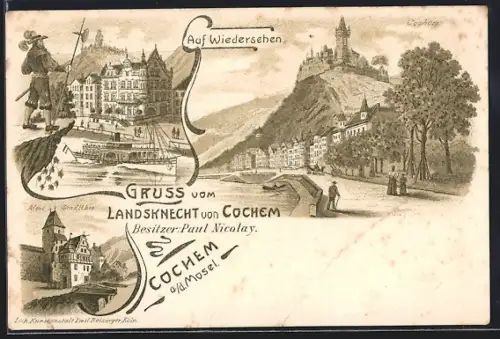 Auf Wiedersehen.
Cochem
GRUSS VOM
LANDSKNECHT von COCHEM
Besitzer: Paul Nicolay.
COCHEM
a/d Mosel
Lith. Kunstanstalt Emil
Köln